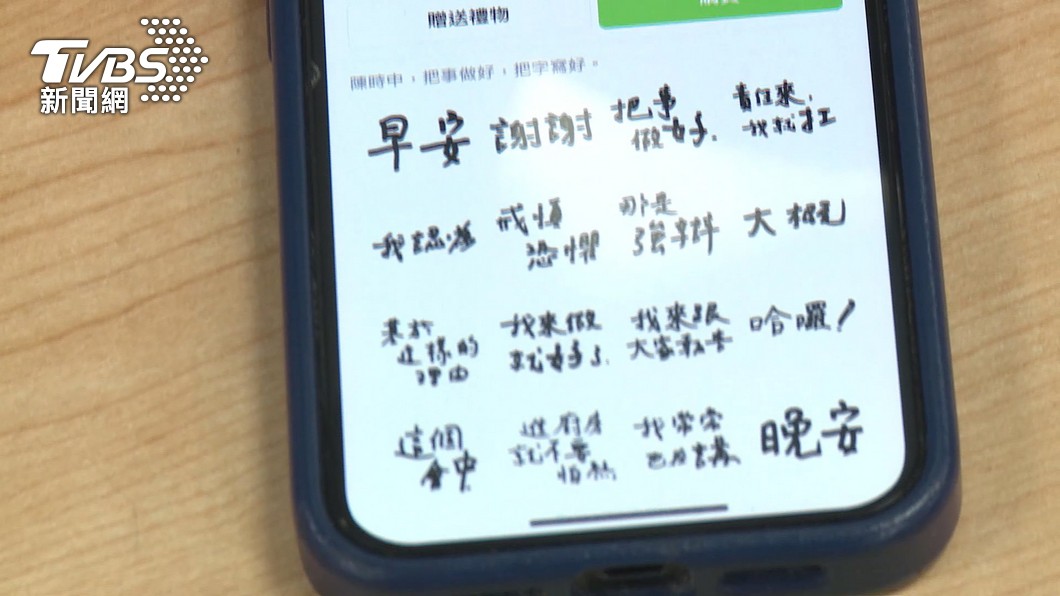 TVBS
新聞網
贈送禮物
陳時中，把事做好，把字寫好。
早安
謝謝
把事
做好.
責任來,
我就扛
我認為
戒慎
恐懼
那是
強辯
大概
基於
這樣的
理由
我來做
就好了.
我來跟
大家報告
哈囉!
這個
會中
進廚房
就不要
怕熱
我常常
也在講
晚安